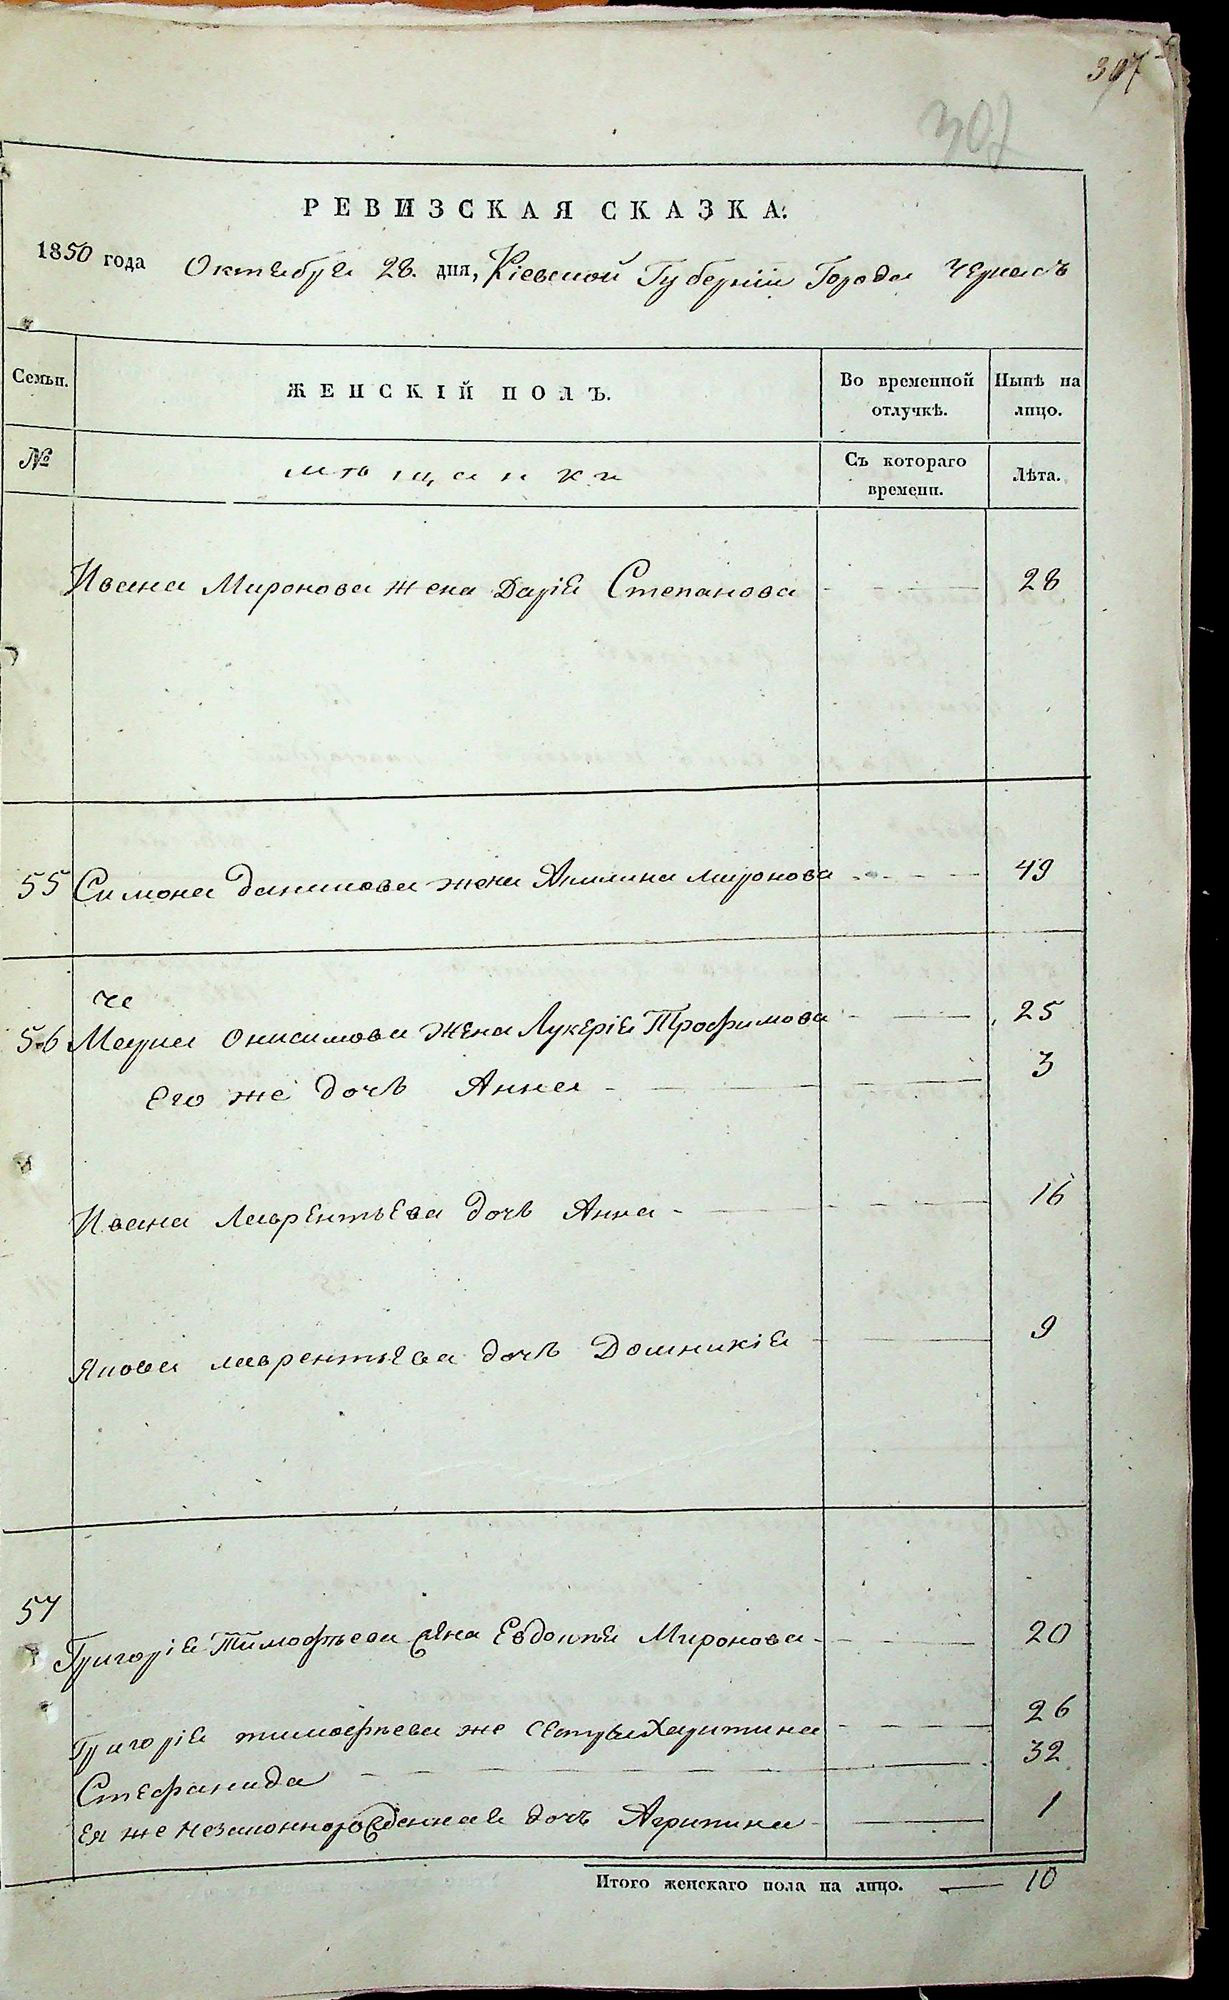 307
307
РЕВИЗСКАЯ СКАЗКА.
1850 года Октября 28. дня, Кіевской Губерніи Города Черкасъ
Семьи.
ЖЕНСКІЙ ПОЛЪ.
Во временной отлучкѣ.
Нынѣ на лицо.
№
мѣщанки
Съ котораго времени.
Лѣта.
Ивана Миронова жена Дарія Степанова 28
55 Симона Данилова жена Акилина Миронова 49
56 Онисимова жена Лукерія Трофимова 25
Его же дочь Анна 3
Ивана Лаврентьева дочь Анна 16
Якова Лаврентьева дочь Домникія 9
57
Григорія Тимофѣева жена Евдокія Миронова 20
Григорія Тимофѣева же сестры Харитина 26
Стефанида 32
Ея же незаконнорожденная дочь Агрипина 1
Итого женскаго пола на лицо. 10